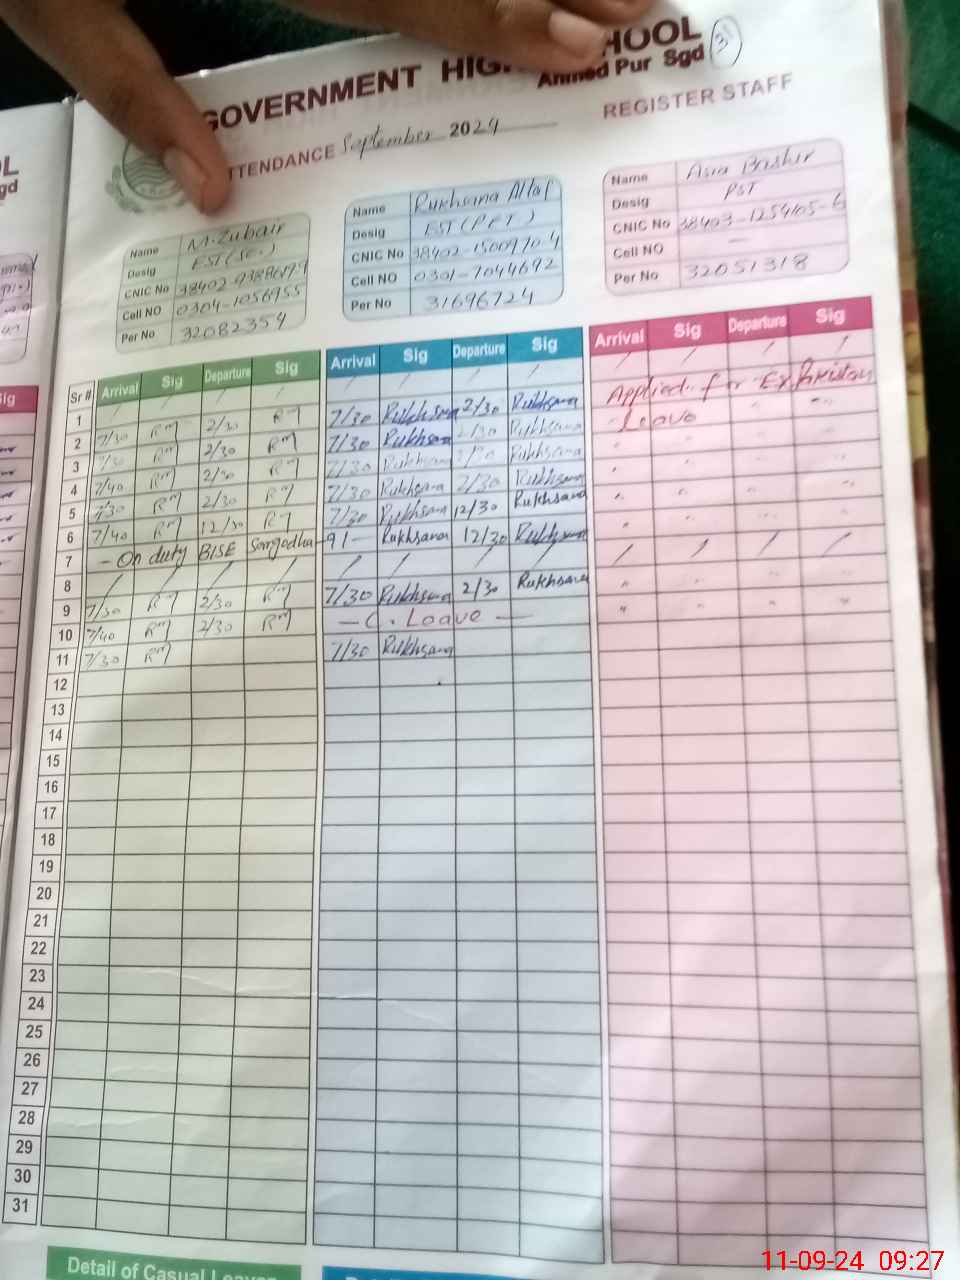 GOVERNMENT HIGH SCHOOL
Ahmed Pur Sgd 31
ATTENDANCE September 2024 REGISTER STAFF
Name M. Zubair
Desig EST (Sc.)
CNIC No
Cell NO 0304-1056955
Per No 32082354
Name Rukhsana Altaf
Desig EST (PET)
CNIC No 38402-1500970-4
Cell NO 0301-7044692
Per No 31696724
Name Asia Bashir
Desig PST
CNIC No 38403-1254105-6
Cell NO —
Per No 32051318
Sr # Arrival Sig Departure Sig Arrival Sig Departure Sig Arrival Sig Departure Sig
1 / / / / / / / / / / / /
2 7/30 RM 2/30 RM 7/30 Rukhsana 2/30 Rukhsana Applied for Ex Pakistan
3 7/30 RM 2/30 RM 7/30 Rukhsana 2/30 Rukhsana Leave
4 7/40 RM 2/30 RM 7/30 Rukhsana 2/30 Rukhsana
5 7/30 RM 2/30 RM 7/30 Rukhsana 2/30 Rukhsana
6 7/40 RM 12/30 RM 7/30 Rukhsana 12/30 Rukhsana
7 - On duty BISE Sargodha - 91- Rukhsana 12/30 Rukhsana
8 / / / / / / / / / / / /
9 7/30 RM 2/30 RM 7/30 Rukhsana 2/30 Rukhsana
10 7/40 RM 2/30 RM — C. Leave —
11 7/30 RM 7/30 Rukhsana
12
13
14
15
16
17
18
19
20
21
22
23
24
25
26
27
28
29
30
31
Detail of Casual Leaves
11-09-24 09:27